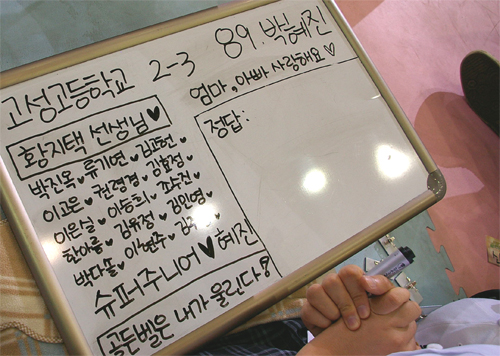 고성고등학교 2-3 89.박혜진
엄마, 아빠 사랑해요♡
황지택 선생님♥
정답:
박진옥♥류기연♥김고현♥
이고은♥권령경♥김효정♥
이은실♥이승희♥조수진♥
한아름♥김유정♥김인영♥
박다솔♥이현주♥
슈퍼주니어♥혜진
골든벨은 내가 울린다!